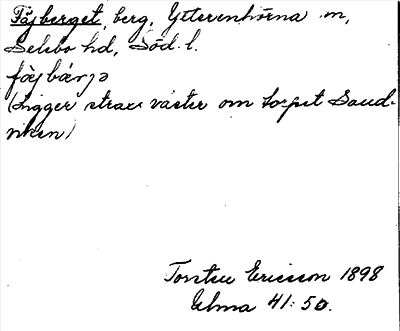 Fäjberget, berg, Ytterenhörna sn,
Selebo hd, Söd. l.
fäjbärjə
(Ligger strax väster om torpet Sand-
viken)
Torsten Ericsson 1898
Elma 41:50.